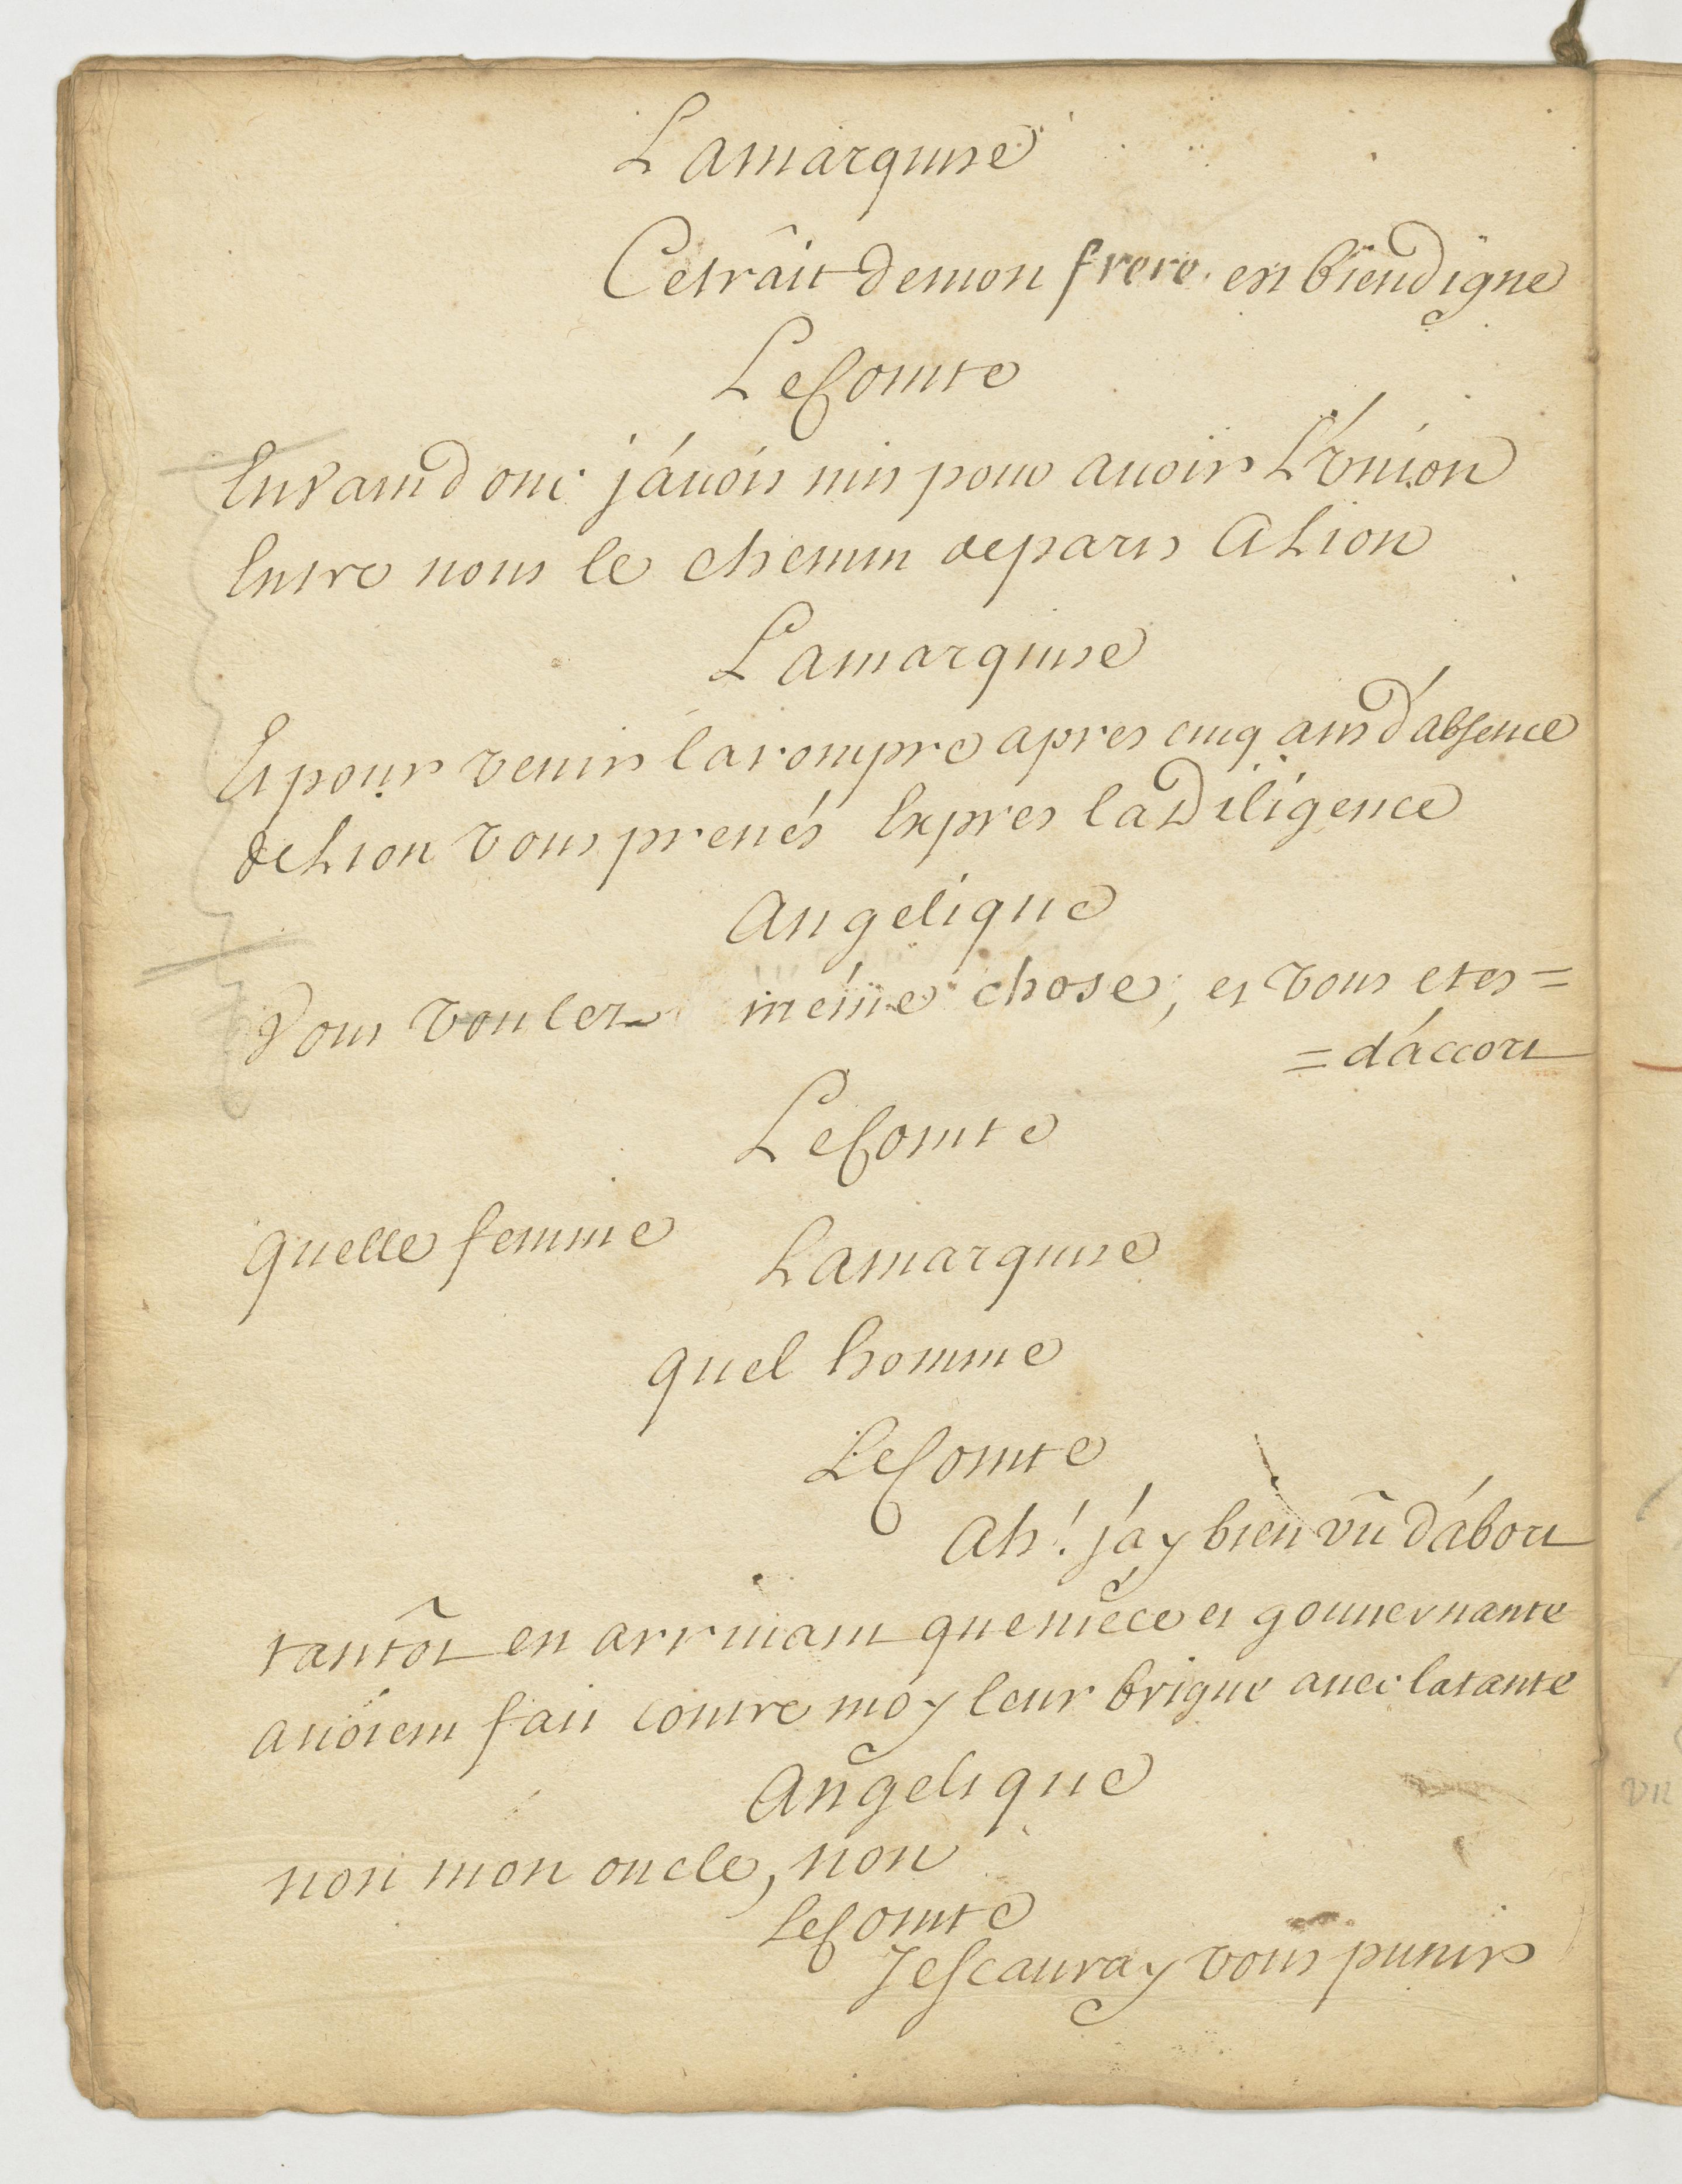 Lamarquise
Cetrâit demon frere est biendigne
LeComte
Envaindonc j'avois mis pour avoir L'vnion
Entre nous le chemin deparis A Lion
Lamarquise
Et pour venir larompre apres cinq ans d'absence
deLion vous prenés Expres laDiligence
Angelique
Vous voulez même chose, et vous etes=
=d'accort
LeComte
quelle femme
Lamarquise
quel homme
LeComte
Ah! j'ay bien vû d'abort
tantôt en arrivant queniéce et gouvernante
avoient fait contre moy leur brigue avec latante
Angelique
non mon oncle, non
LeComte
Jescauray vous punir